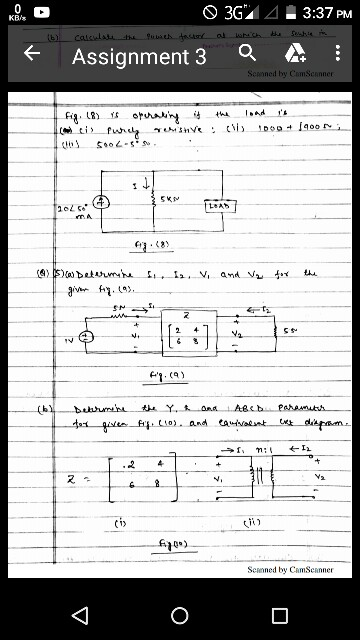 0
KB/s
3G
3:37 PM
(b) Calculate the Power factor at which the source in
Assignment 3
Scanned by CamScanner
Fig. (8) is operating if the load is
(i) Purely resistive; (ii) 1000 + j900 Ω;
(iii) 500∠-5° Ω.
I ↓
20∠50° mA
5KΩ
LOAD
Fig. (8)
(5) (a) Determine I1, I2, V1 and V2 for the
given Fig. (9).
5Ω → I1
Z
← I2
1V
+ V1 -
[2 4
6 8]
+ V2 -
5Ω
Fig. (9)
(b) Determine the Y, and ABCD Parameters
for given Fig. (10). and equivalent ckt diagram.
→ I1 n:1 ← I2
Z = [.2 4
6 8]
+ V1 -
+ V2 -
(i)
(ii)
Fig (10)
Scanned by CamScanner